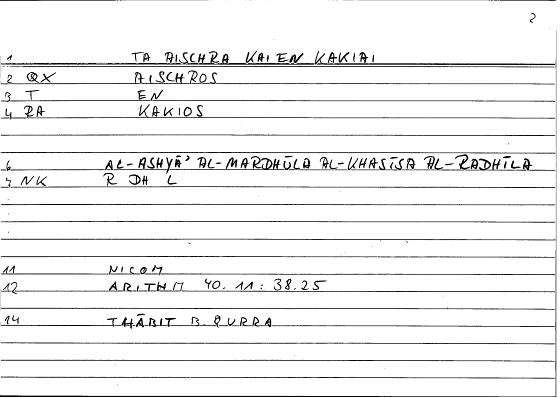 2
1 TA AISCHRA KAI EN KAKIAI
2 QX AISCHROS
3 T EN
4 RA KAKIOS
6 AL-ASHYĀ' AL-MARDHŪLA AL-KHASĪSA AL-RADHĪLA
7 NK R DH L
11 NICOM
12 ARITHM 40.11:38.25
14 THĀBIT B. QURRA